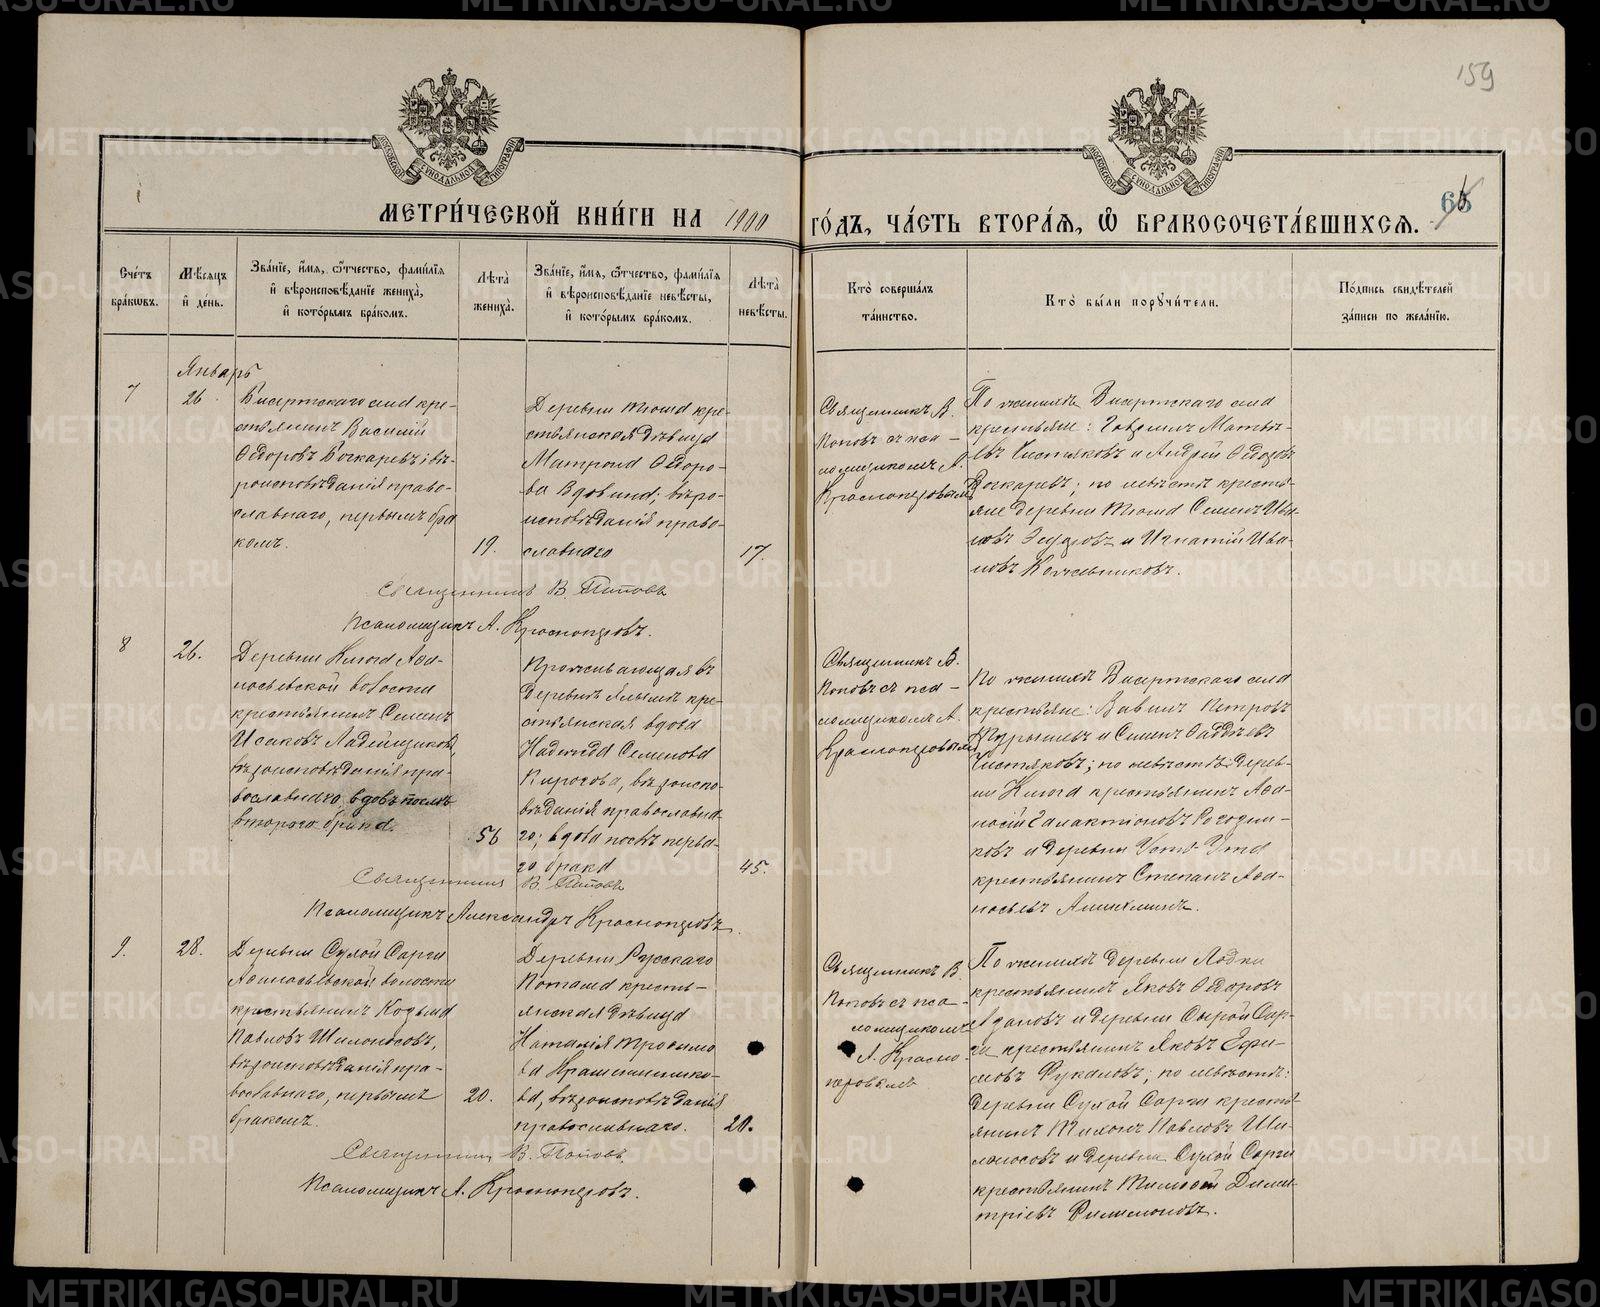 159
МОСКОВСКОЙ СУНОДАЛЬНОЙ ТИПОГРАФІИ
МОСКОВСКОЙ СУНОДАЛЬНОЙ ТИПОГРАФІИ
МЕТРИ́ЧЕСКОЙ КНИ́ГИ НА 1900 ГО́ДЪ, ЧА́СТЬ ВТОРА́Ѧ, Ѽ БРАКОСОЧЕТА́ВШИХСѦ.
Сче́тъ
бра́кѡвъ.
Мѣ́сяцъ
и҆ де́нь.
Зва́нїе, и҆́мѧ, ѻ҆́тчество, фами́лїѧ
и҆ вѣроисповѣ́данїе жениха̀,
и҆ кото́рымъ бра́комъ.
Лѣ́та
жениха̀.
Зва́нїе, и҆́мѧ, ѻ҆́тчество, фами́лїѧ
и҆ вѣроисповѣ́данїе невѣ́сты,
и҆ кото́рымъ бра́комъ.
Лѣ́та
невѣ́сты.
Кто̀ соверша́лъ
та́инство.
Кто̀ бы́ли порꙋчи́тели.
По́дпись свидѣ́телей
за́писи по жела́нїю.
Январь
7
26
Бисертскаго села кре-
стьянинъ Василій
Ѳедоровъ Бочкаревъ; вѣ-
роисповѣданія право-
славнаго, первымъ бра
комъ.
19.
Деревни Тюша кре-
стьянская дѣвица
Матрона Ѳедоро-
ва Вдовина; вѣро-
исповѣданія право-
славнаго
17.
Священникъ В.
Поповъ съ пса-
ломщикомъ А.
Красноперовымъ
По женихѣ Бисертскаго села
крестьяне: Гавріилъ Матвѣ-
евъ Чистяковъ и Андрей Ѳедоровъ
Бочкаревъ; по невѣстѣ кресть-
яне деревни Тюша Семенъ Ива
новъ и Игнатій Ива-
новъ Кожевниковъ.
Священникъ В. Поповъ
Псаломщикъ А. Красноперовъ.
8
26.
Деревни Кленова Аѳа-
насьевской волости
крестьянинъ Семенъ
Исаковъ Ладейщиковъ,
вѣроисповѣданія пра-
вославнаго, вдовъ послѣ
второго брака.
56
Проживающая въ
деревнѣ Ялымъ кре-
стьянская вдова
Надежда Семенова
Кирогова, вѣроиспо-
вѣданія православна-
го; вдова послѣ перва-
го брака
45.
Священникъ В.
Поповъ съ пса-
ломщикомъ А.
Красноперовымъ
По женихѣ Бисертскаго села
крестьяне: Вавилъ Петровъ
и Семенъ Ѳаддеевъ
Чистяковъ; по невѣстѣ: дерев-
ни Кленова крестьянинъ Аѳа-
насій Галактіоновъ Рогозни-
ковъ и деревни Усть-Ута
крестьянинъ Степанъ Аѳа-
насьевъ
Священникъ В. Поповъ
Псаломщикъ Александръ Красноперовъ.
9.
28.
Деревни Сухой Сарги
Аѳанасьевской волости
крестьянинъ Козьма
Павловъ Шилоносовъ,
вѣроисповѣданія пра-
вославнаго, первымъ
бракомъ.
20.
Деревни Русскаго
Поташа кресть-
янская дѣвица
Наталія Трофимо
ва Крашенинико-
ва, вѣроисповѣданія
православнаго.
20.
Священникъ В.
Поповъ съ пса-
ломщикомъ
А. Красно-
перовымъ
По женихѣ деревни Лядки
крестьянинъ Яковъ Ѳедоровъ
и деревни Сырой Сар-
ги крестьянинъ Яковъ Ефи-
мовъ Рукаловъ; по невѣстѣ:
деревни Сухой Сарги кресть-
янинъ Тихонъ Павловъ Ши-
лоносовъ и деревни Сухой Сарги
крестьянинъ Тимоѳей Дими-
тріевъ Филимоновъ.
Священникъ В. Поповъ.
Псаломщикъ А. Красноперовъ.
METRIKI.GASO-URAL.RU